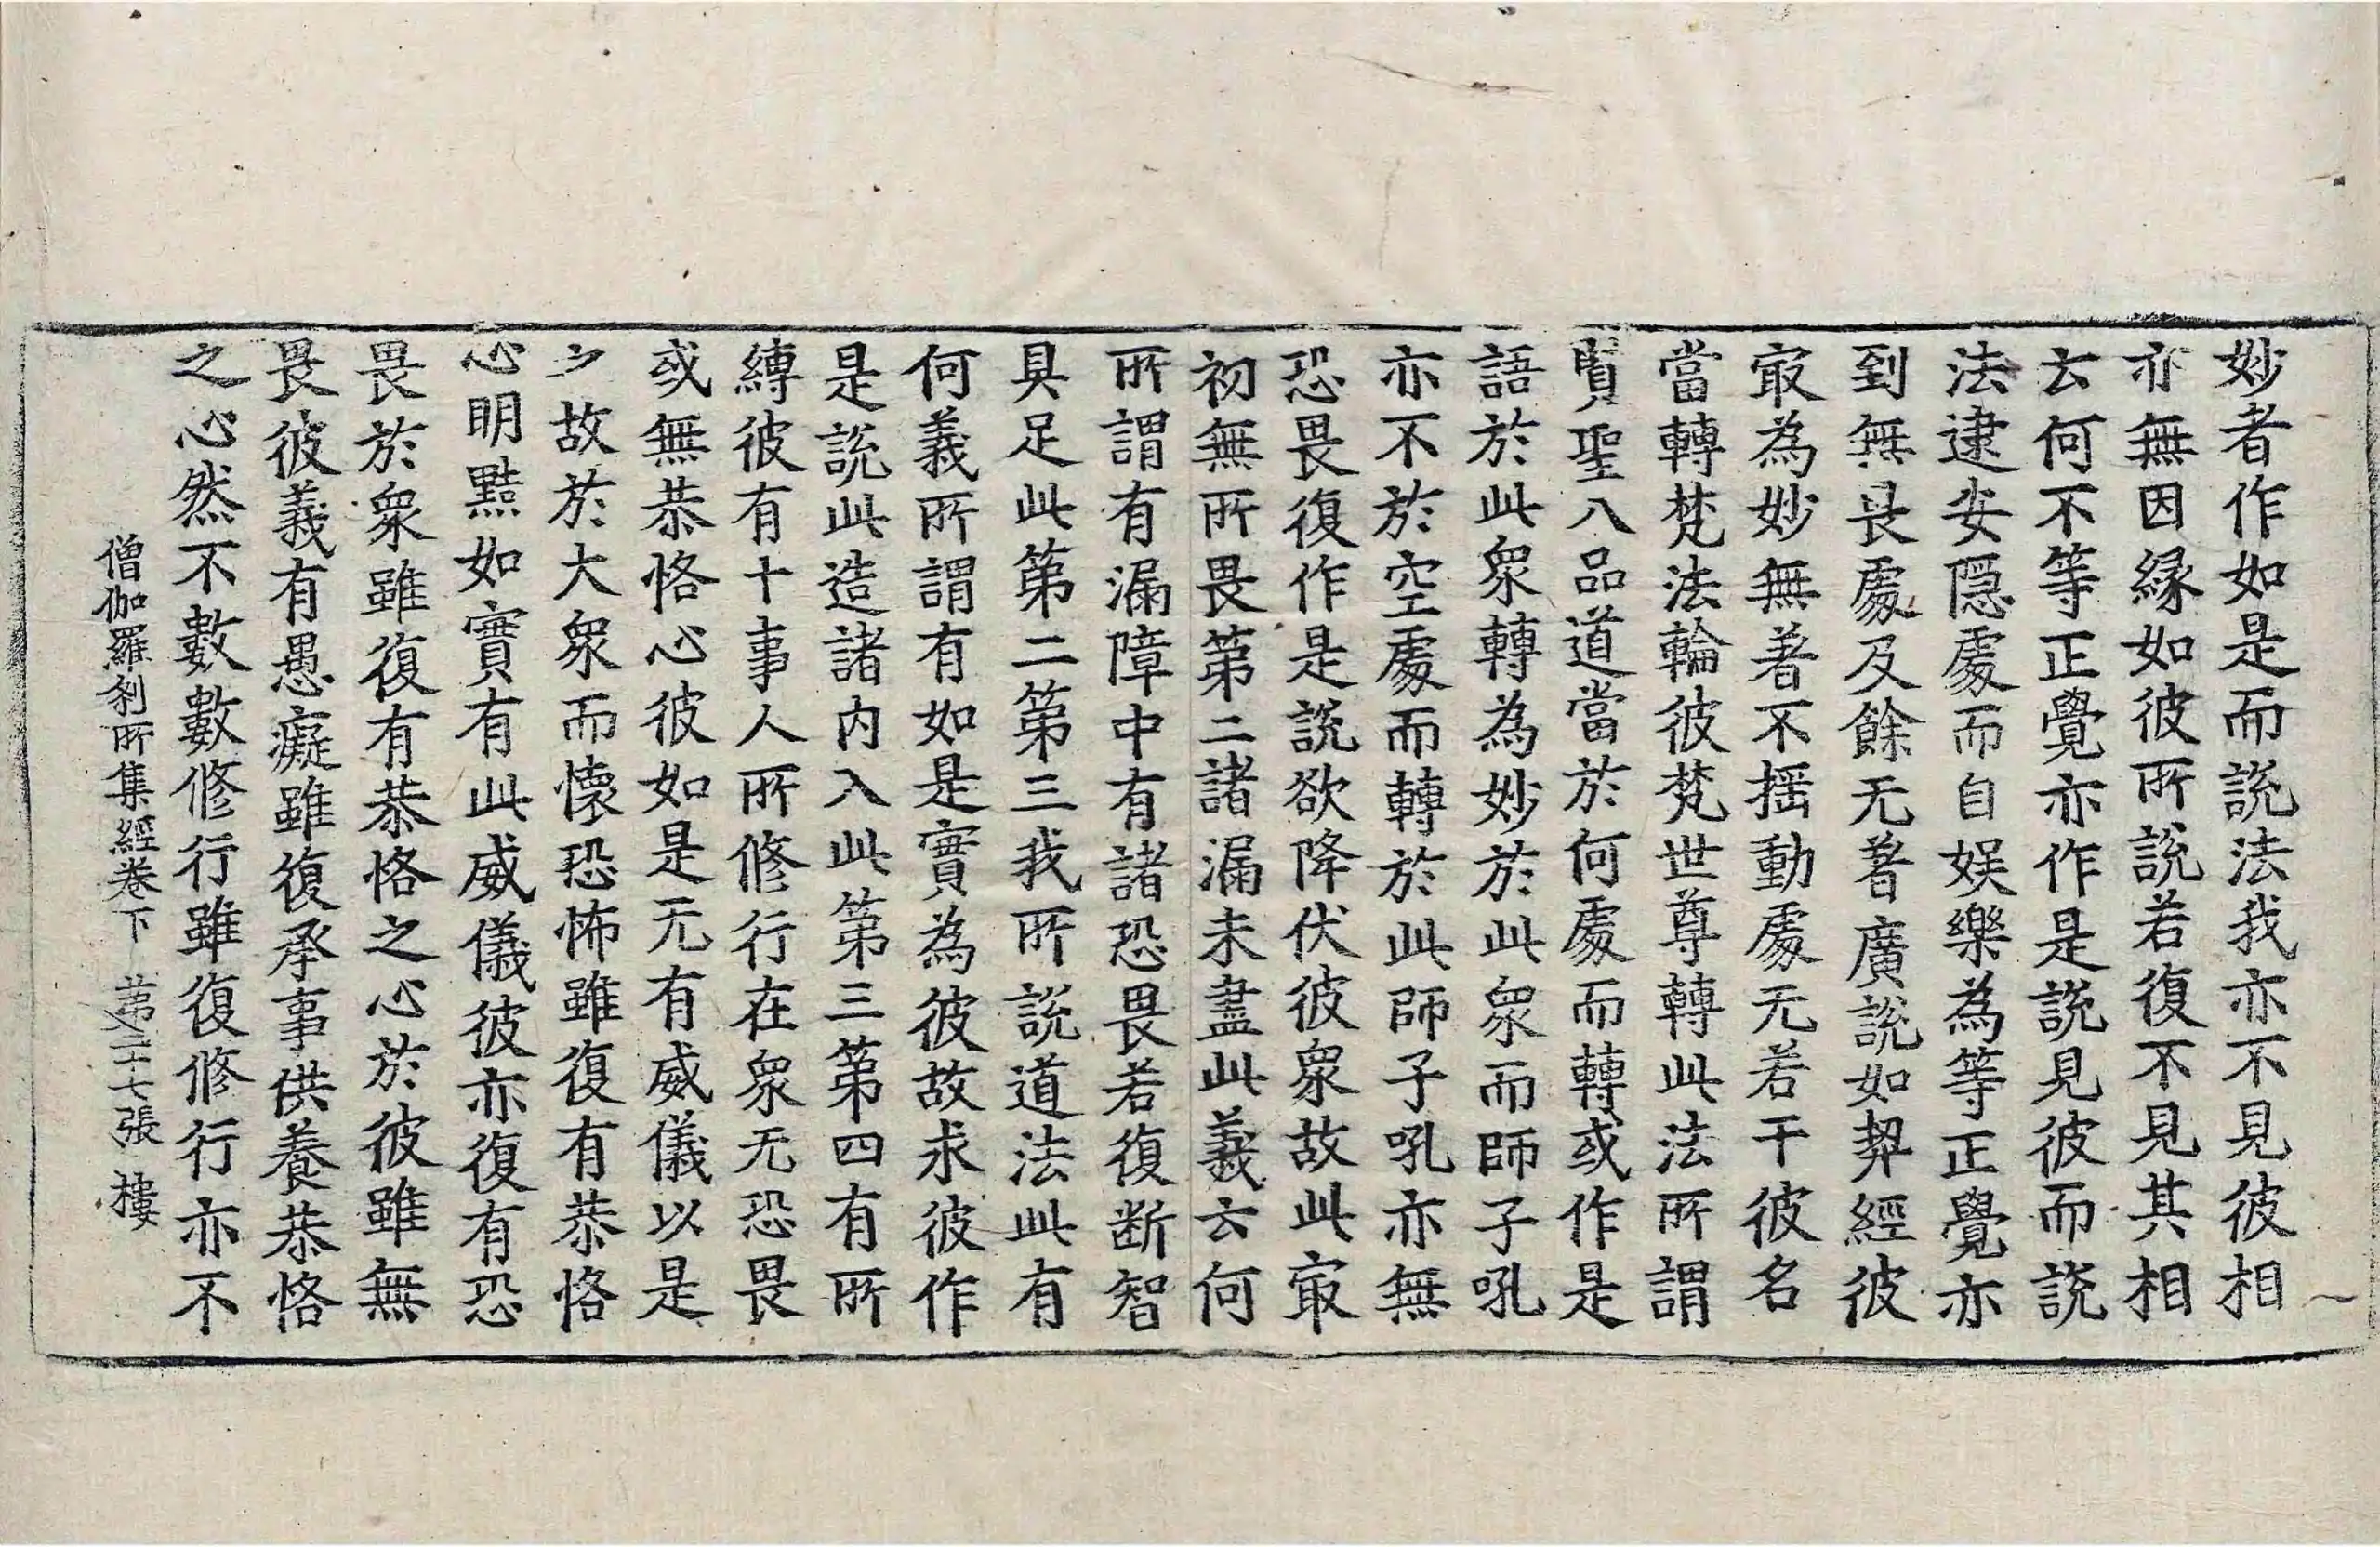 妙者作如是而說法我亦不見彼相
亦無因緣如彼所說若復不見其相
云何不等正覺亦作是說見彼而說
法逮安隱處而自娛樂為等正覺亦
到無畏處及餘无著廣說如契經彼
㝡為妙無著不揺動處无若干彼名
當轉梵法輪彼梵世尊轉此法所謂
賢聖八品道當於何處而轉或作是
語於此衆轉為妙於此衆而師子吼
亦不於空處而轉於此師子吼亦無
恐畏復作是說欲降伏彼衆故此㝡
初無所畏第二諸漏未盡此義云何
所謂有漏障中有諸恐畏若復断智
具足此第二第三我所說道法此有
何義所謂有如是實為彼故求彼作
是說此造諸內入此第三第四有所
縛彼有十事人所修行在衆无恐畏
或無恭恪心彼如是无有威儀以是
少故於大衆而懷恐怖雖復有恭恪
心明黠如實有此威儀彼亦復有恐
畏於衆雖復有恭恪之心於彼雖無
畏彼義有愚癡雖復承事供養恭恪
之心然不數數修行雖復修行亦不
僧伽羅刹所集經卷下 第二十七張 樓